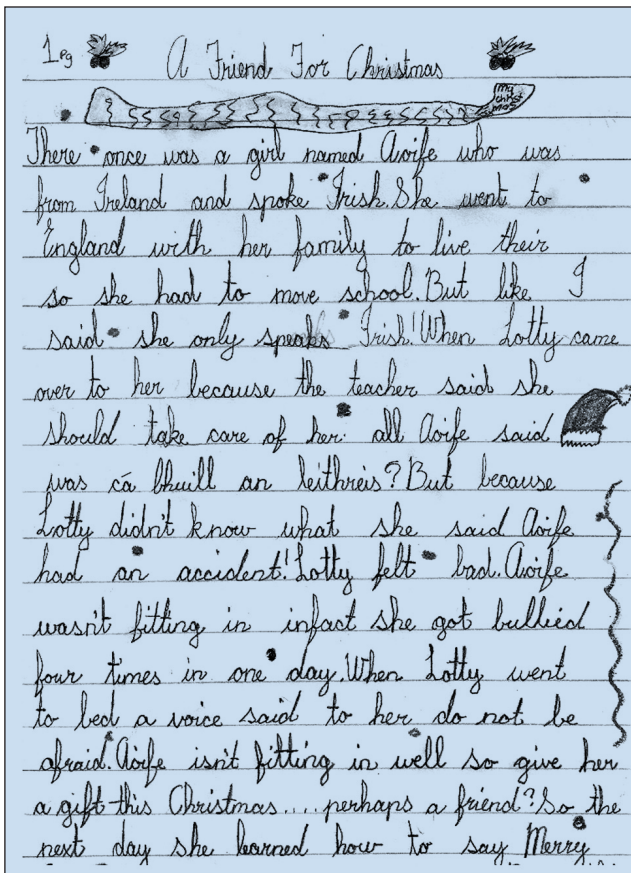 1pg
A Friend For Christmas
my
christ
mas
There once was a girl named Aoife who was
from Ireland and spoke Irish. She went to
England with her family to live their
so she had to move school. But like I
said she only speaks Irish! When Lotty came
over to her because the teacher said she
should take care of her all Aoife said
was cá bhuill an leithreis? But because
Lotty didn't know what she said Aoife
had an accident! Lotty felt bad. Aoife
wasn't fitting in infact she got bullied
four times in one day. When Lotty went
to bed a voice said to her do not be
afraid. Aoife isn't fitting in well so give her
a gift this Christmas.... perhaps a friend? So the
next day she learned how to say Merry